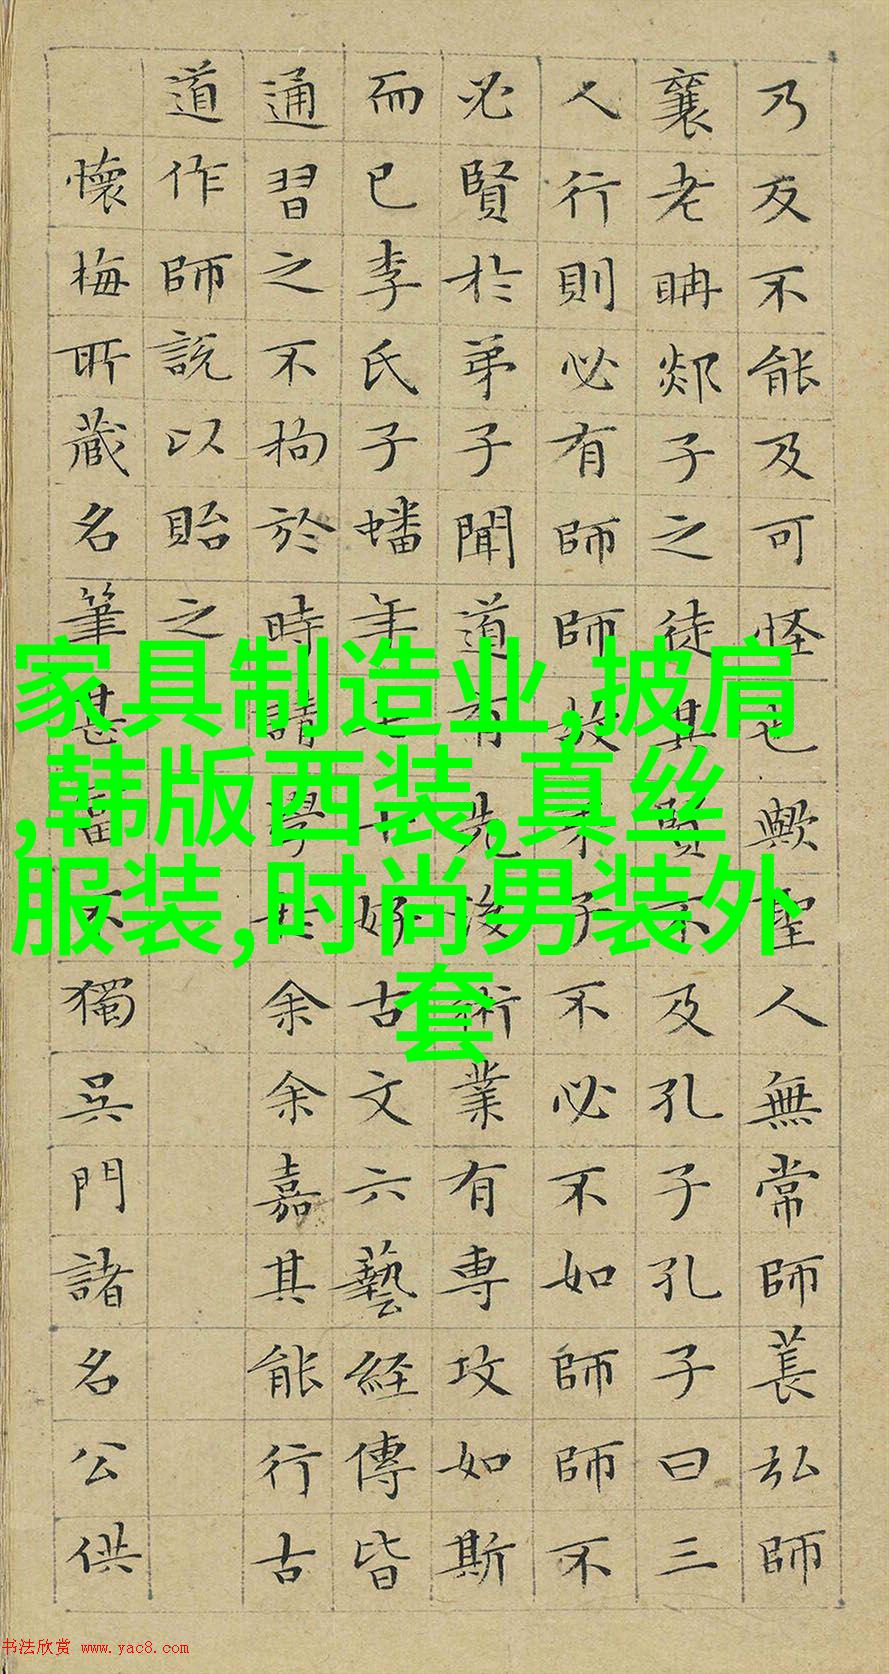 乃反不能及可怪也歟聖人無常師萇弘師
襄老聃郯子之徒其賢不及孔子孔子曰三
人行則必有師師故子不必不如師師不
必賢於弟子聞道有先後術業有專攻如斯
而已李氏子蟠年十七好古文六藝経傳皆
通習之不拘於時請學余余嘉其能行古
道作師說以貽之
懷梅所藏名筆甚富不獨吳門諸名公供
家具制造业,披肩
,韩版西装,真丝
服装,时尚男装外
套
书法欣赏 www.yac8.com